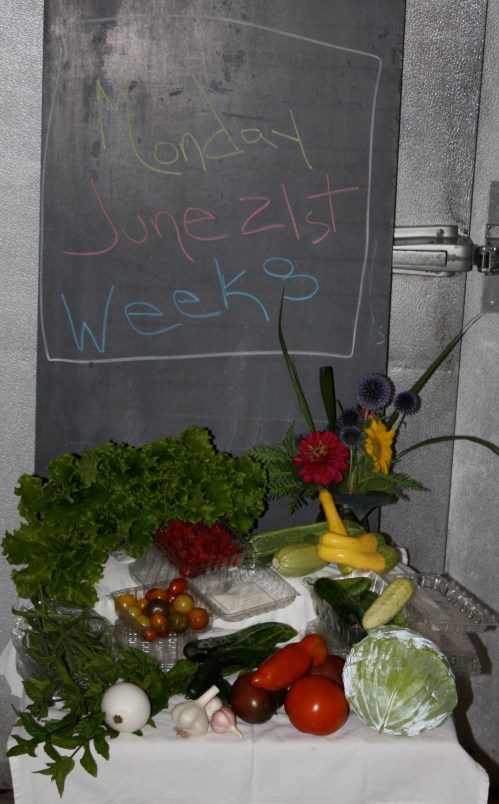 Monday
June 21st
Week 8